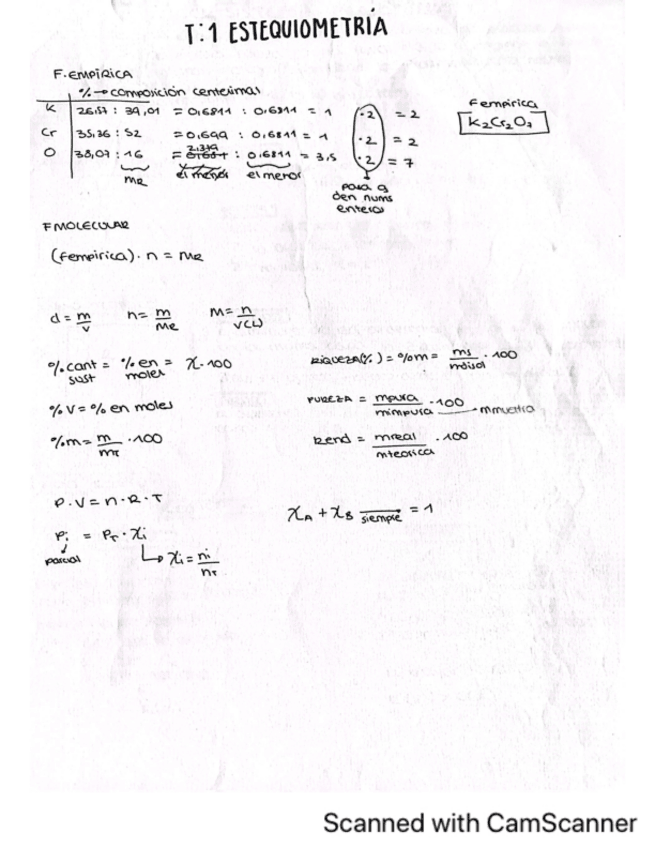 T:1 ESTEQUIOMETRÍA
F.EMPÍRICA
% → composición centesimal
K 26,57 : 39,01 = 0,6811 : 0,6811 = 1 ·2 = 2
Cr 35,36 : 52 = 0,699 : 0,6811 = 1 ·2 = 2
O 38,07 : 16 = 2,379 : 0,6811 = 3,5 ·2 = 7
Mr el menor el menor
para q
den nums
enteros
Fempírica
K₂Cr₂O₇
FMOLECULAR
(fempírica) · n = Mr
d = m/v n = m/Mr M = n/V(L)
% cant sust = % en moles = χ · 100
% V = % en moles
% m = m/mT · 100
RIQUEZA(%) = %m = ms/mdisol · 100
PUREZA = mpura/mimpura · 100 mmuestra
Rend = mreal/mteorica · 100
P · V = n · R · T
Pi = PT · χi
parcial
χi = ni/nT
χA + χB siempre = 1
Scanned with CamScanner